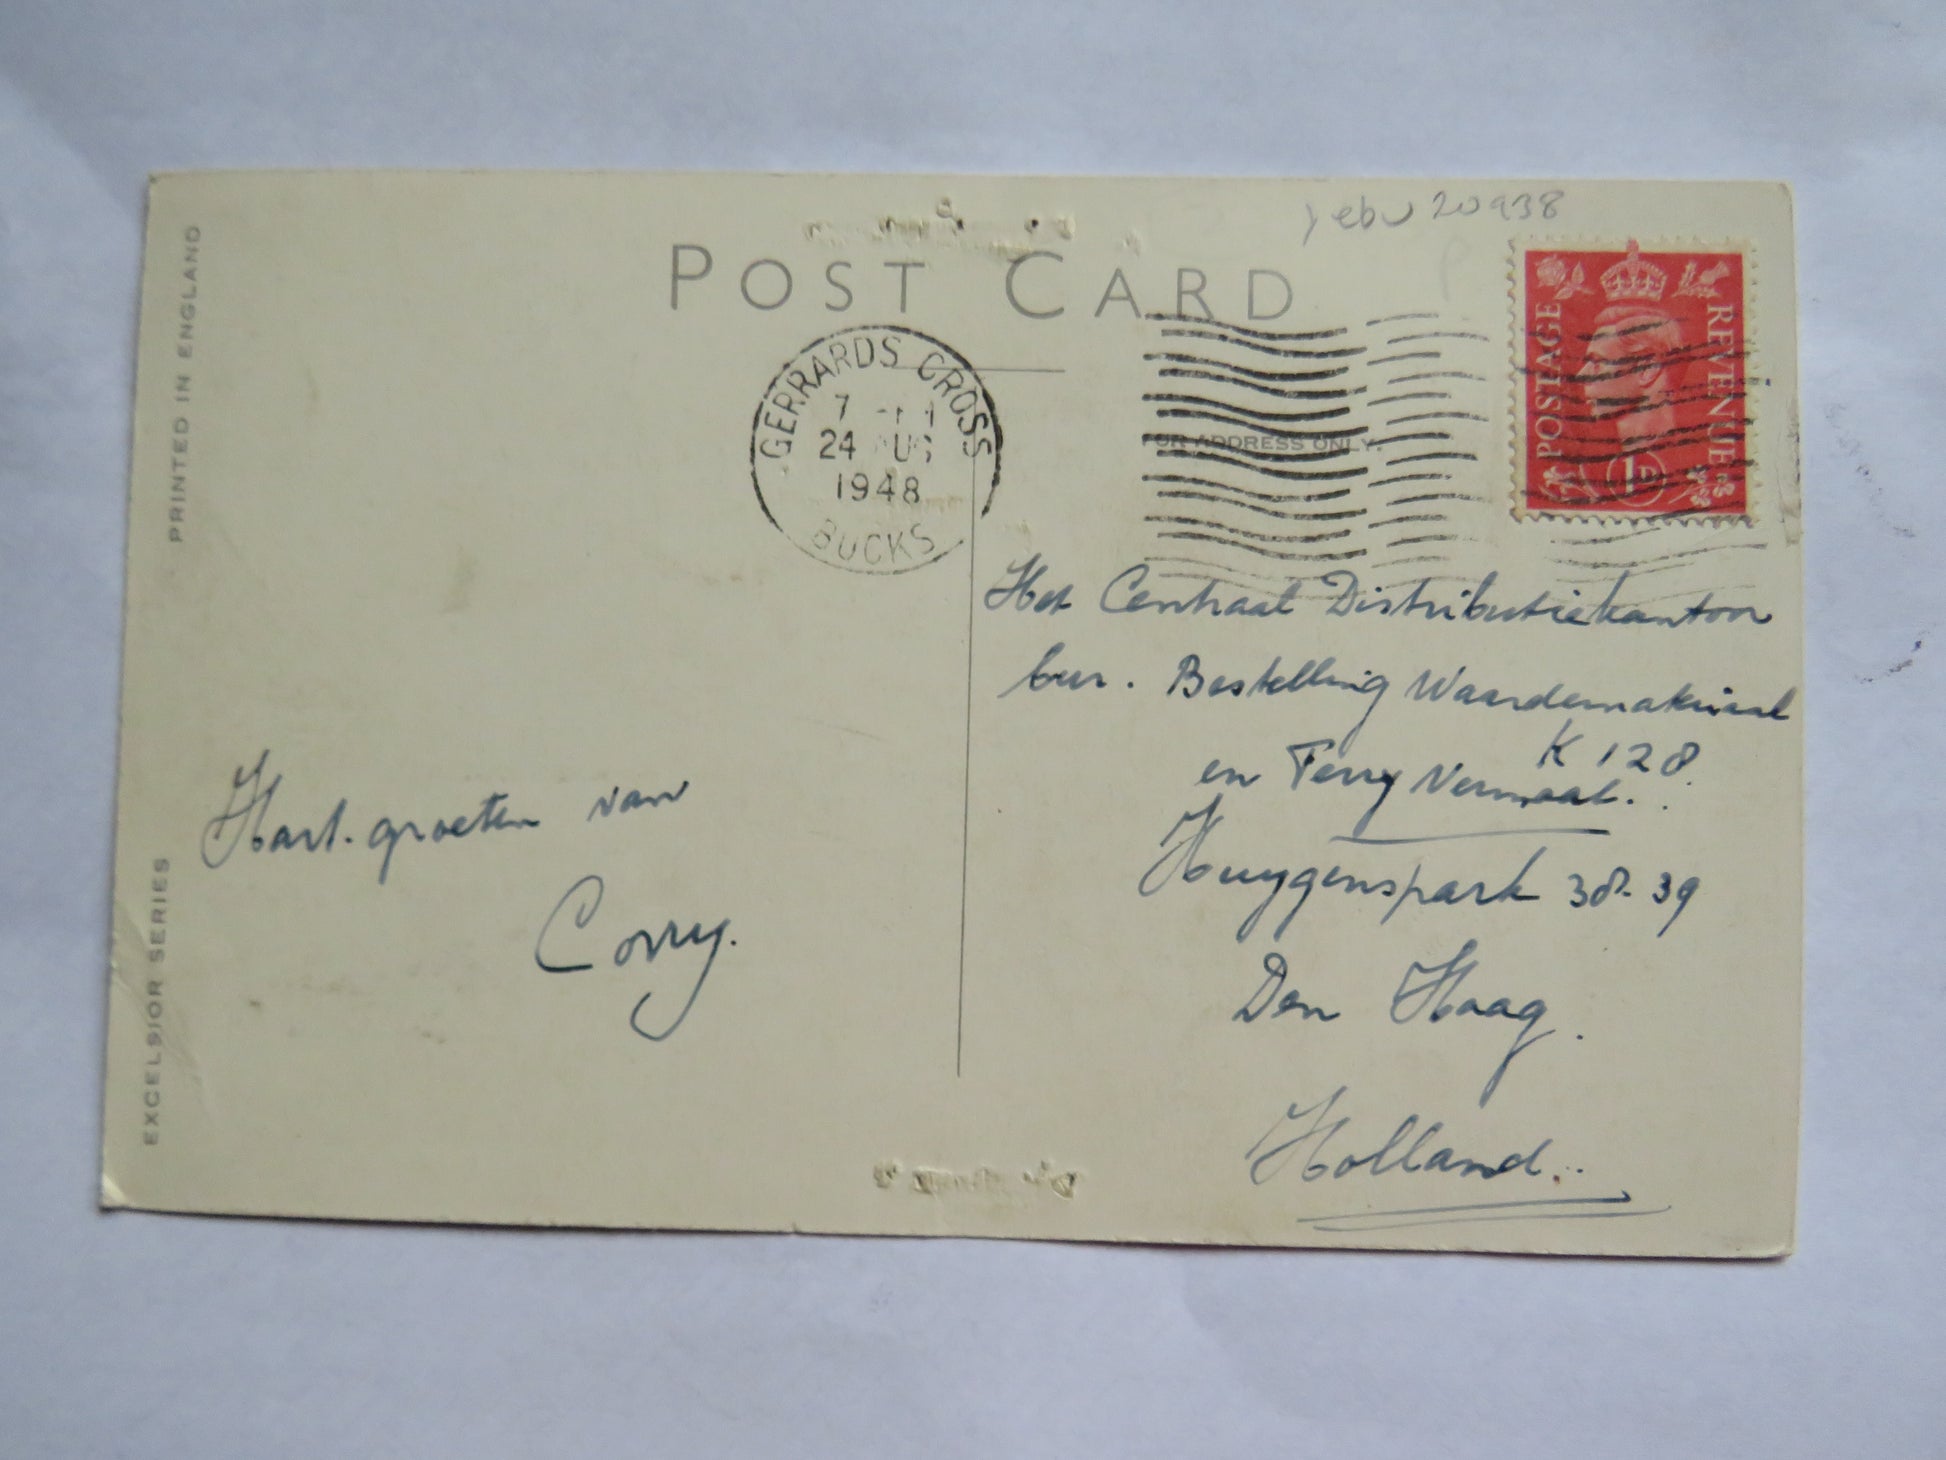 20938
POST CARD
POSTAGE
REVENUE
1D
GERRARDS CROSS
7
24 AUG
1948
BUCKS
FOR ADDRESS ONLY.
PRINTED IN ENGLAND
EXCELSIOR SERIES
Hart. groeten van
Corry.
Het Centraal Distributiekantoor
bur. Bestelling Waardemateriaal
K 128
en Ferry Vermaat.
Huygenspark 38-39
Den Haag.
Holland.